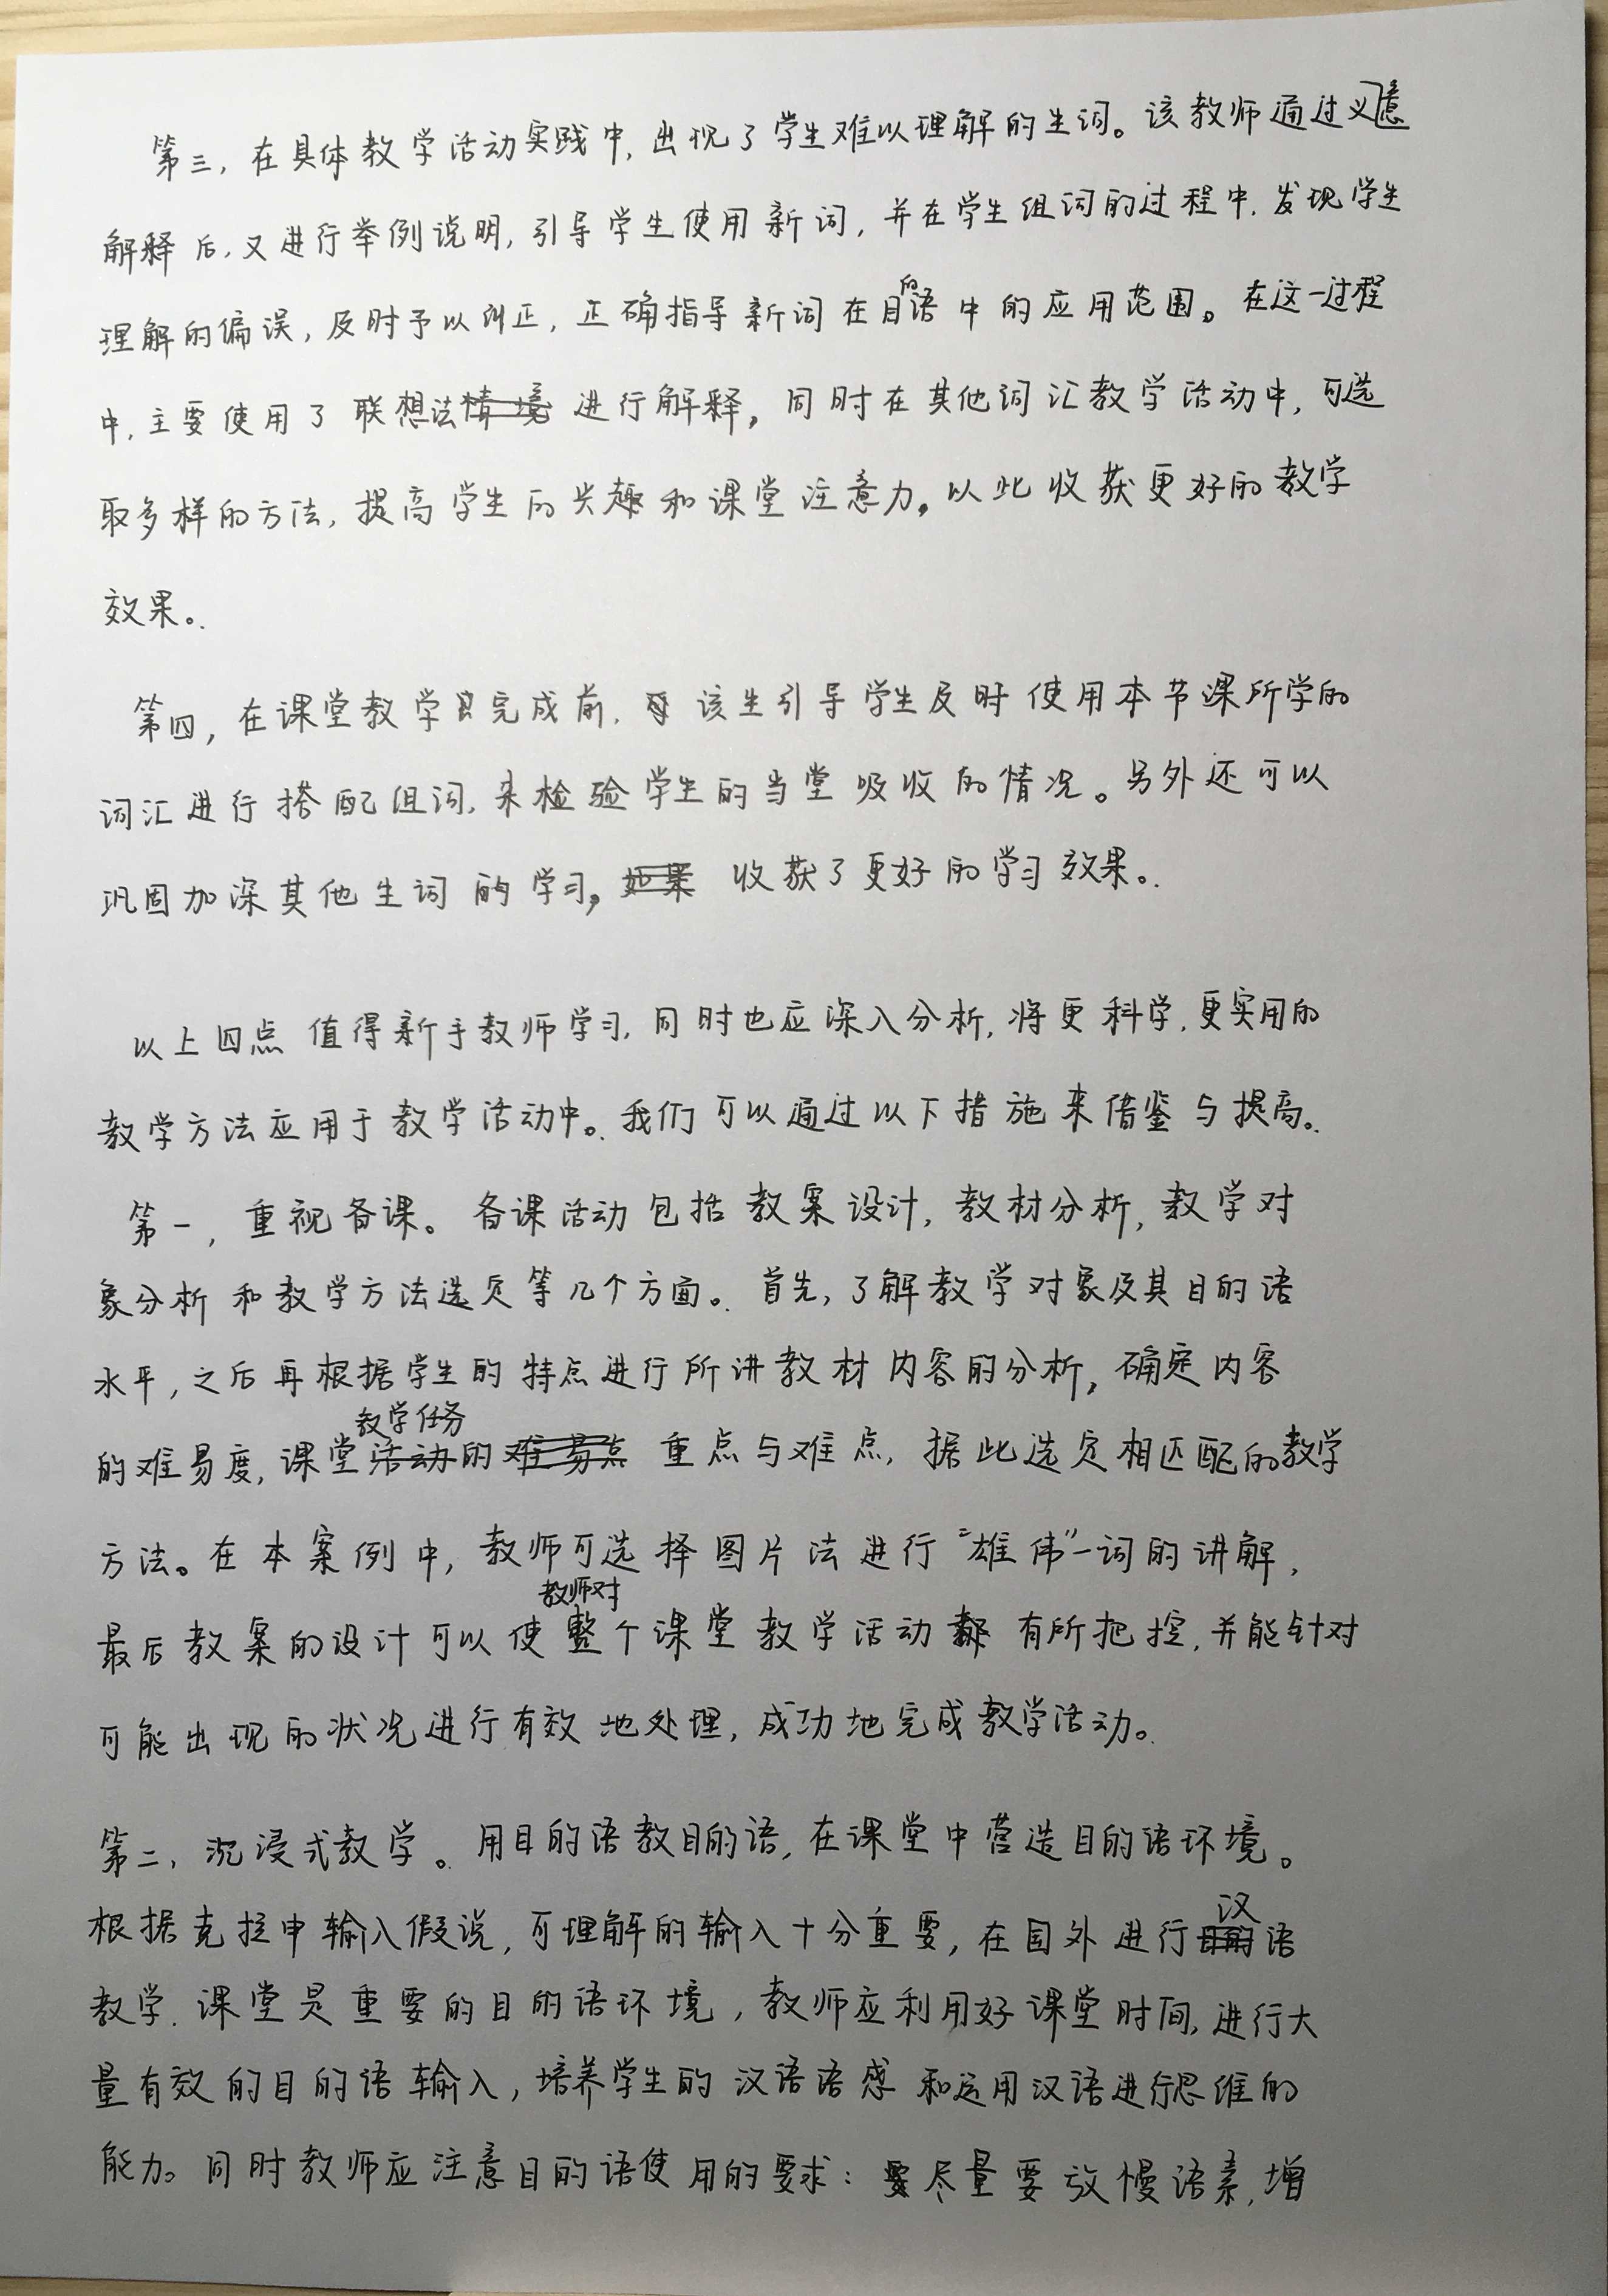 第三，在具体教学活动实践中，出现了学生难以理解的生词。该教师通过义意
解释后，又进行举例说明，引导学生使用新词，并在学生组词的过程中，发现学生
理解的偏误，及时予以纠正，正确指导新词在目的语中的应用范围。在这一过程
中，主要使用了联想法进行解释，同时在其他词汇教学活动中，可选
取多样的方法，提高学生的兴趣和课堂注意力，以此收获更好的教学
效果。
第四，在课堂教学完成前，该生引导学生及时使用本节课所学的
词汇进行搭配组词，来检验学生的当堂吸收的情况。另外还可以
巩固加深其他生词的学习，收获了更好的学习效果。
以上四点值得新手教师学习，同时也应深入分析，将更科学，更实用的
教学方法应用于教学活动中。我们可以通过以下措施来借鉴与提高。
第一，重视备课。备课活动包括教案设计，教材分析，教学对
象分析和教学方法选定等几个方面。首先，了解教学对象及其目的语
水平，之后再根据学生的特点进行所讲教材内容的分析，确定内容
的难易度，课堂教学任务的重点与难点，据此选定相匹配的教学
方法。在本案例中，教师可选择图片法进行“雄伟”一词的讲解，
最后教案的设计可以使教师对整个课堂教学活动都有所把控，并能针对
可能出现的状况进行有效地处理，成功地完成教学活动。
第二，沉浸式教学。用目的语教目的语，在课堂中营造目的语环境。
根据克拉申输入假说，可理解的输入十分重要，在国外进行汉语
教学，课堂是重要的目的语环境，教师应利用好课堂时间，进行大
量有效的目的语输入，培养学生的汉语语感和运用汉语进行思维的
能力。同时教师应注意目的语使用的要求：尽量要放慢语素，增